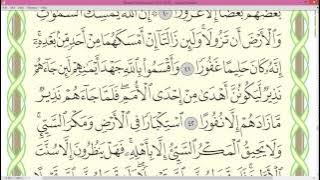 بَعْضُهُم بَعْضًا إِلَّا غُرُورًا ٤٠ إِنَّ ٱللَّهَ يُمْسِكُ ٱلسَّمَٰوَٰتِ
وَٱلْأَرْضَ أَن تَزُولَا وَلَئِن زَالَتَآ إِنْ أَمْسَكَهُمَا مِنْ أَحَدٍ مِّنۢ بَعْدِهِۦٓ
إِنَّهُۥ كَانَ حَلِيمًا غَفُورًا ٤١ وَأَقْسَمُوا۟ بِٱللَّهِ جَهْدَ أَيْمَٰنِهِمْ لَئِن جَآءَهُمْ
نَذِيرٌ لَّيَكُونُنَّ أَهْدَىٰ مِنْ إِحْدَى ٱلْأُمَمِ فَلَمَّا جَآءَهُمْ نَذِيرٌ
مَّا زَادَهُمْ إِلَّا نُفُورًا ٤٢ ٱسْتِكْبَارًا فِى ٱلْأَرْضِ وَمَكْرَ ٱلسَّيِّئِ
وَلَا يَحِيقُ ٱلْمَكْرُ ٱلسَّيِّئُ إِلَّا بِأَهْلِهِۦ فَهَلْ يَنظُرُونَ إِلَّا سُنَّتَ